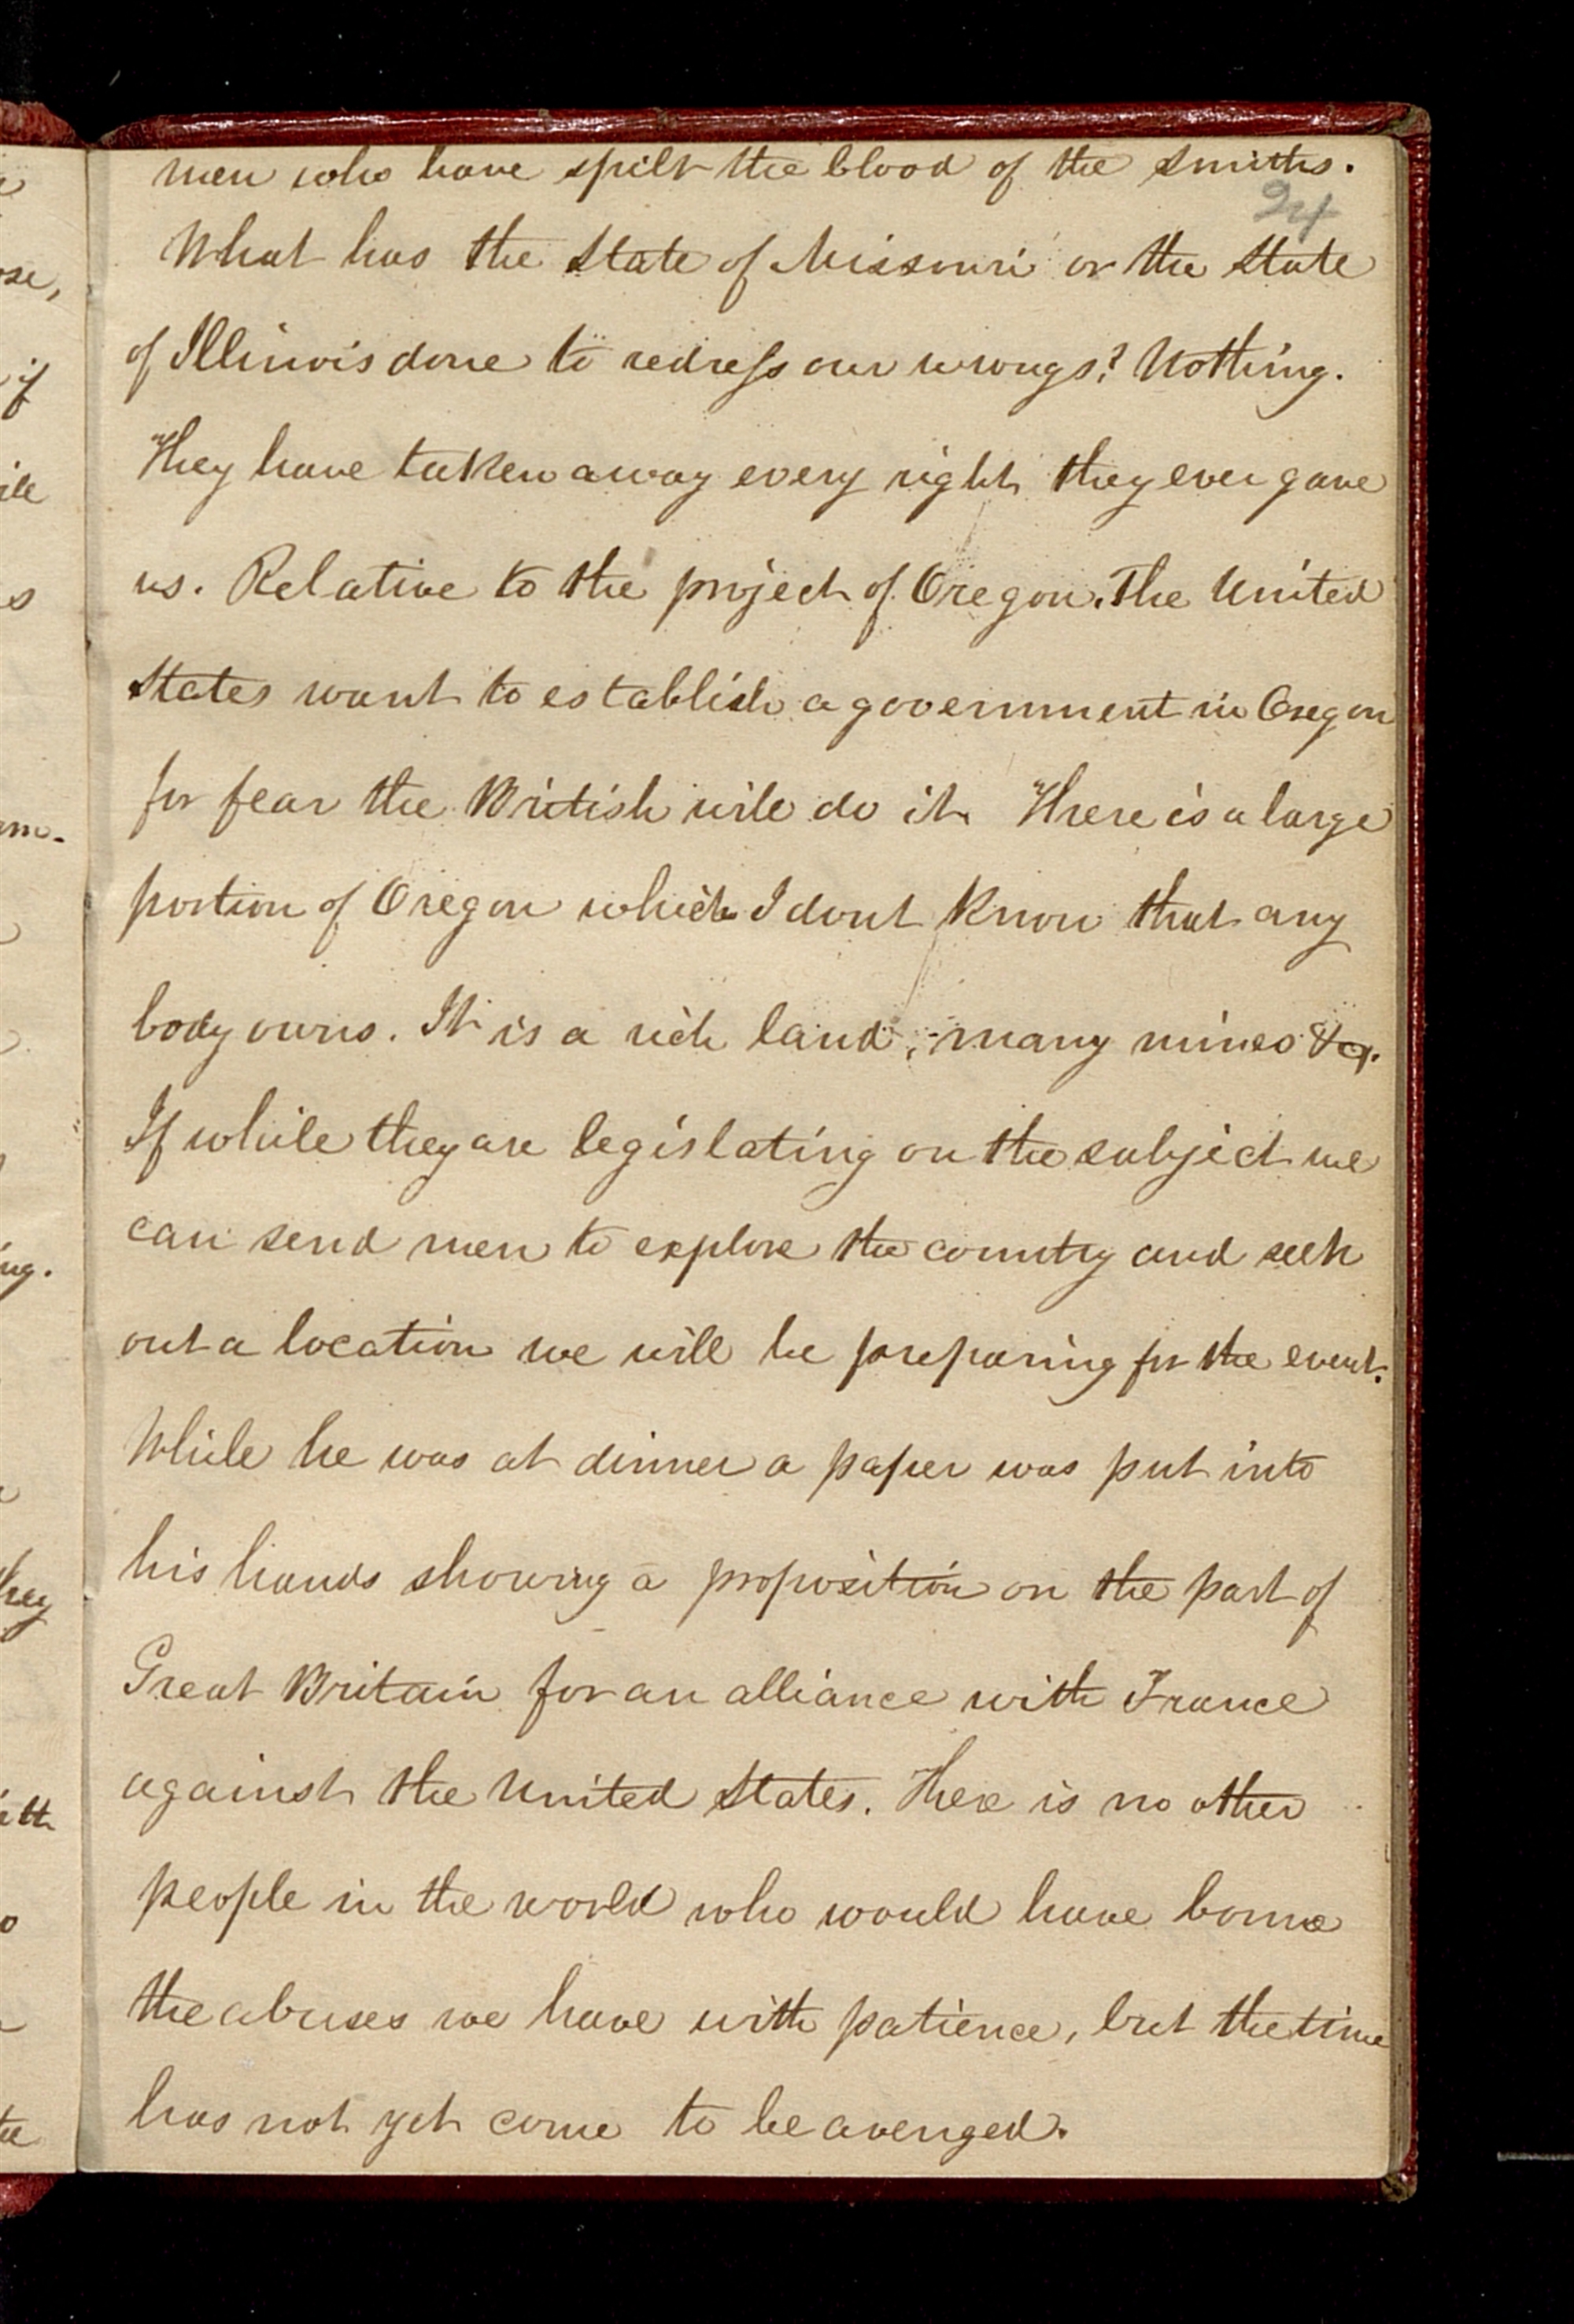 men who have spilt the blood of the smiths.
24
What has the State of Missouri or the State
of Illinois done to redress our wrongs? Nothing.
They have taken away every right they ever gave
us. Relative to the project of Oregon. The United
States want to establish a government in Oregon
for fear the British will do it. There is a large
portion of Oregon which I dont know that any
body owns. It is a rich land, many mines &c.
If while they are legislating on the subject we
can send men to explore the country and seek
out a location we will be preparing for the event.
While he was at dinner a paper was put into
his hands showing a proposition on the part of
Great Britain for an alliance with France
against the United States. There is no other
people in the world who would have borne
the abuses we have with patience, but the time
has not yet come to be avenged.